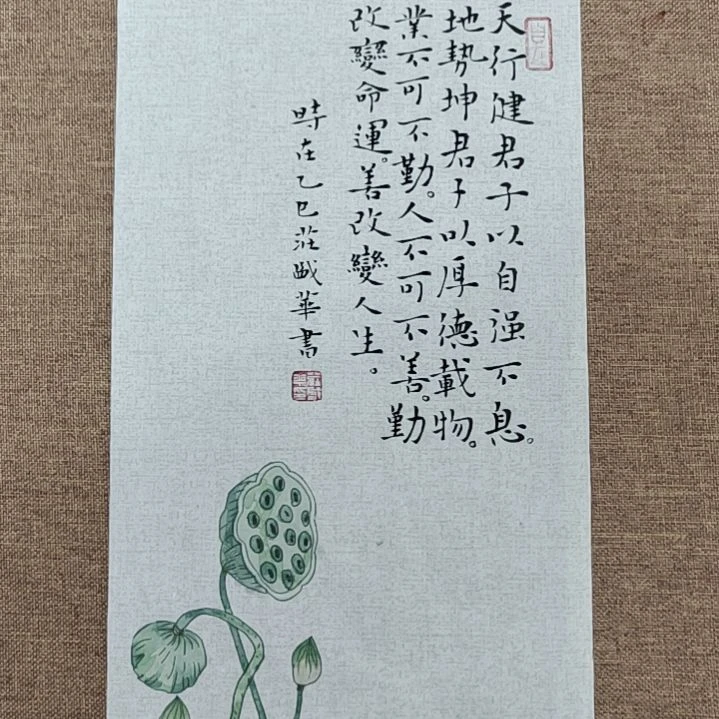 天行健君子以自强不息。
地勢坤君子以厚德載物。
業不可不勤。人不可不善。勤
改變命運。善改變人生。
時在乙巳莊晠華書